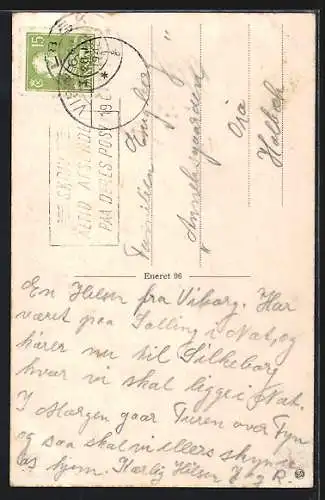 15
VIBORG
*
SKRIV
ALTID AFSENDER
PAA DERES POST
Familien Engberg
"Annebergsgaarden"
Holbæk
Eneret 96
En Hilsen fra Viborg. Har
været paa Salling i Nat, og
kører nu til Silkeborg
hvor vi skal ligge i Nat.
I Morgen gaar Turen over Fyn
og saa skal vi ellers skynde
os hjem. Kærlig Hilsen